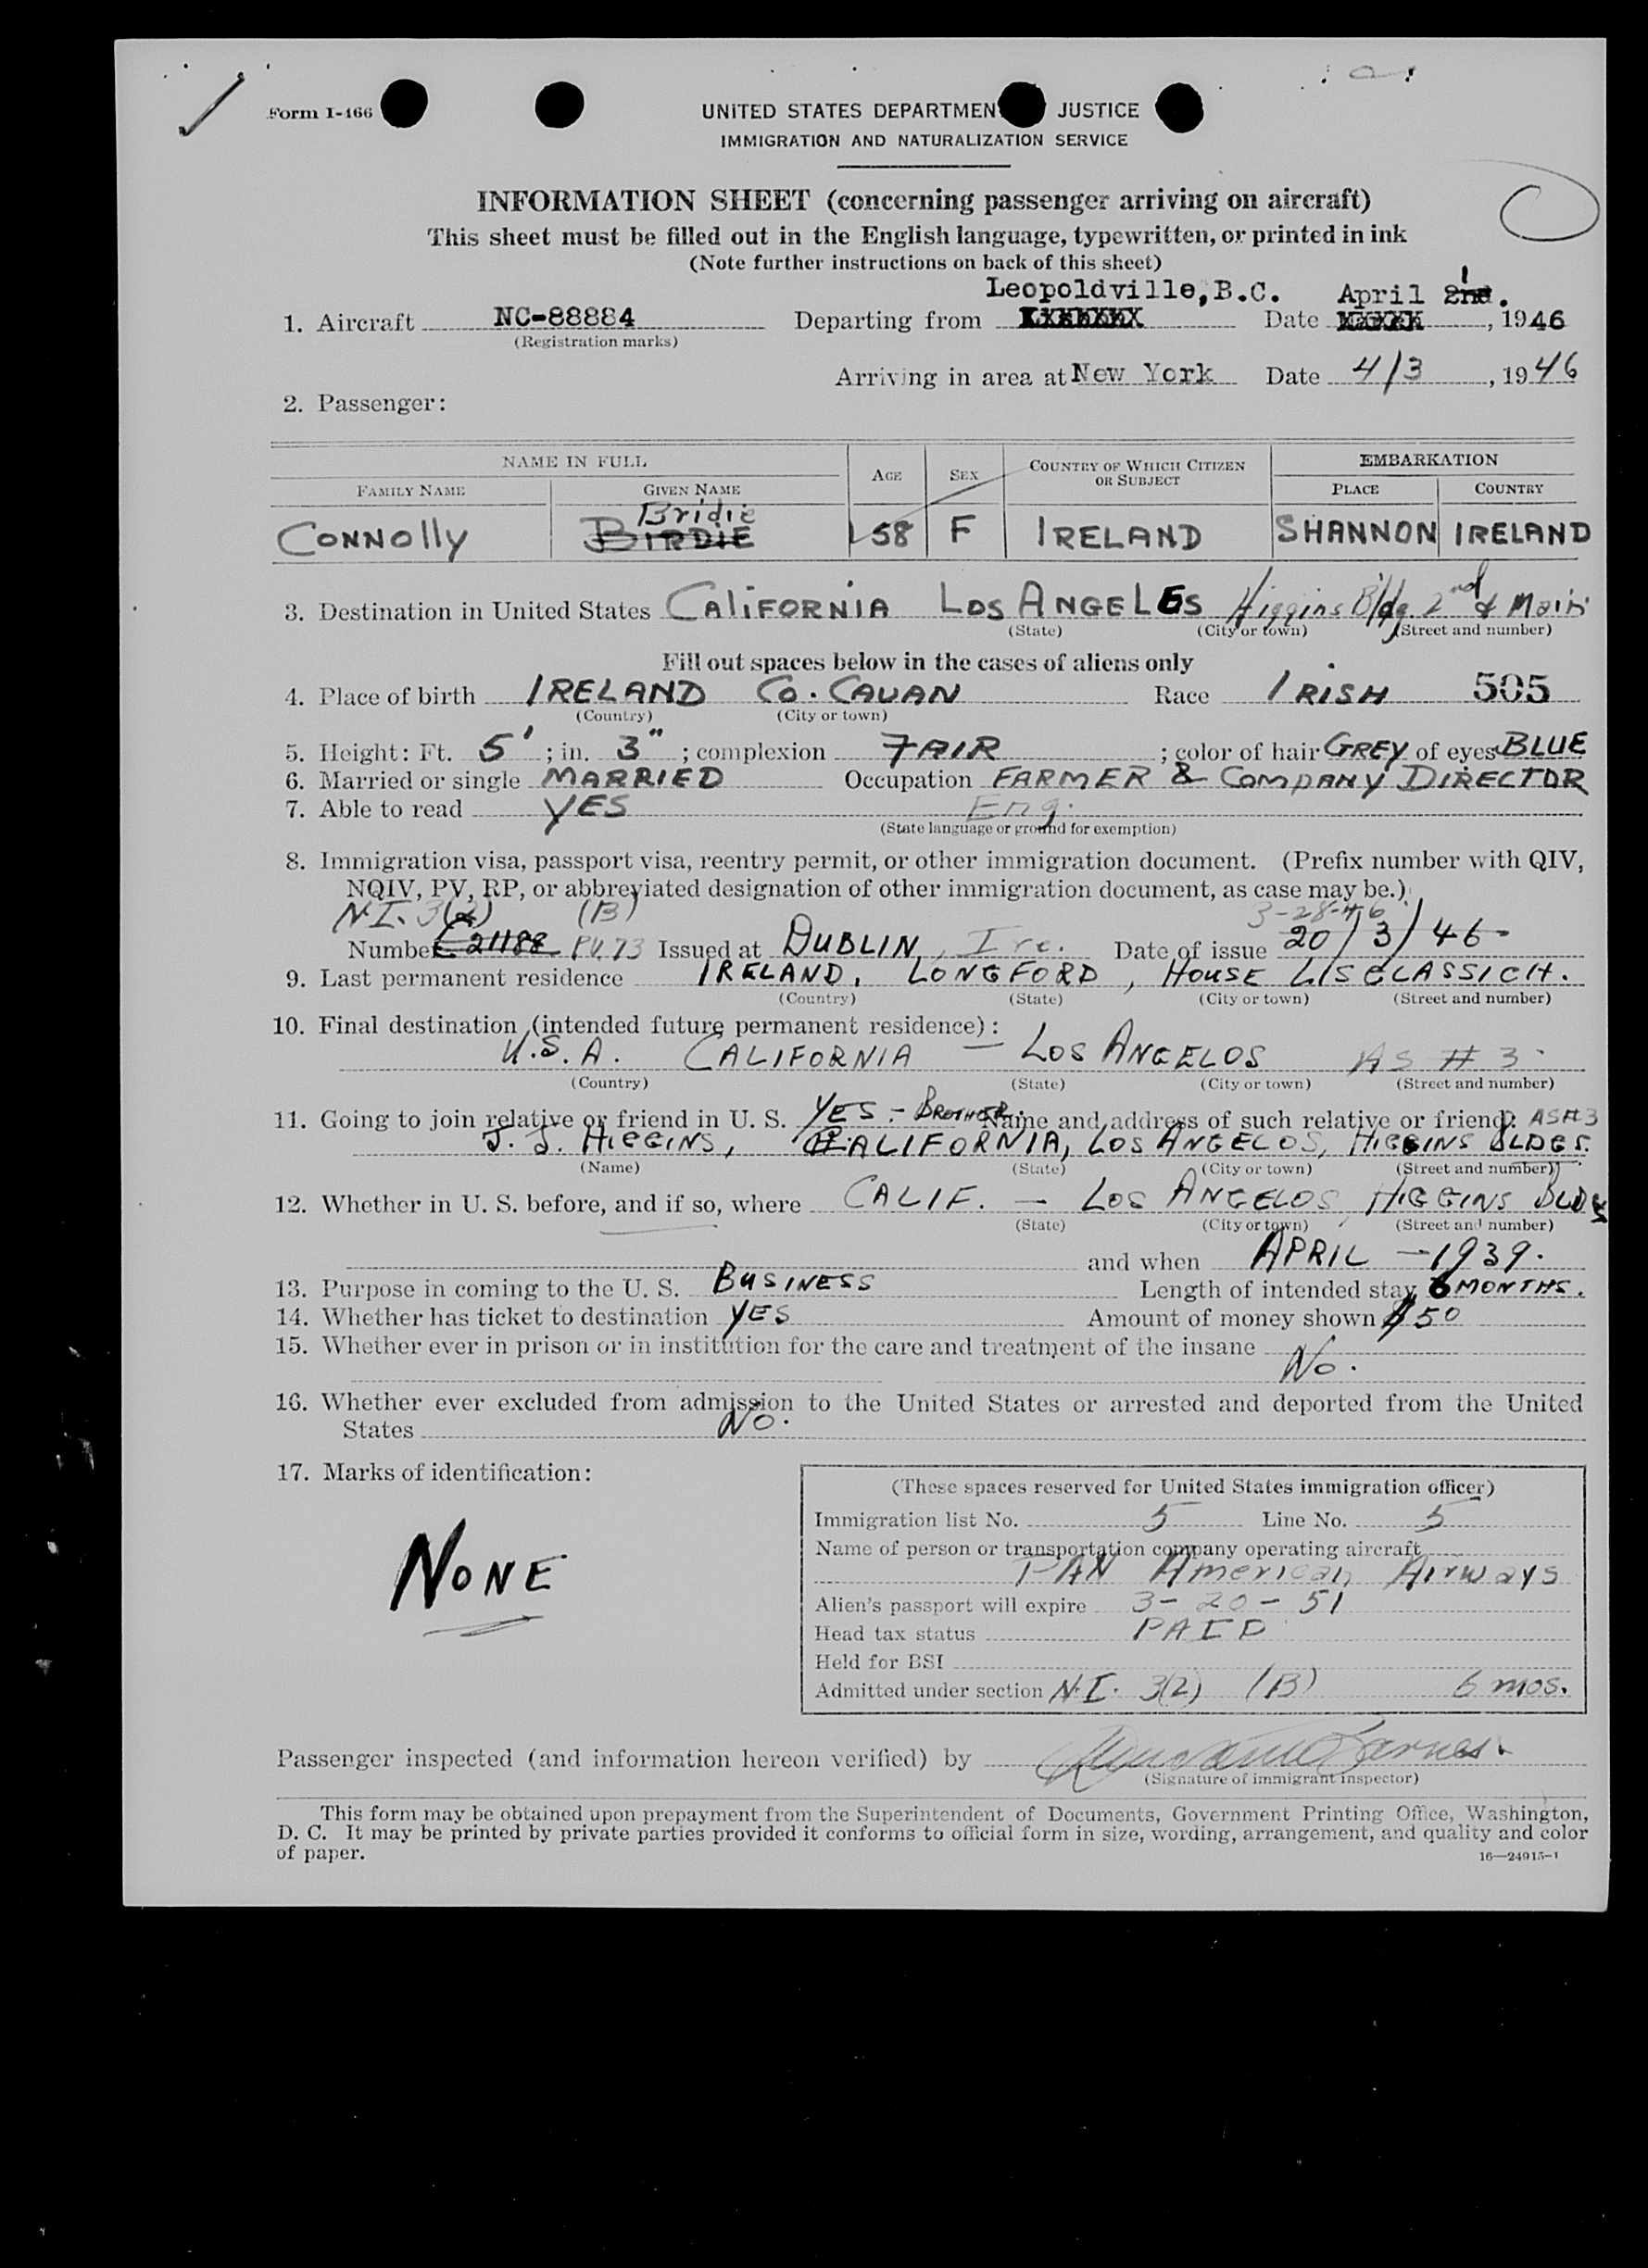 Form I-466
UNITED STATES DEPARTMEN JUSTICE
IMMIGRATION AND NATURALIZATION SERVICE
INFORMATION SHEET (concerning passenger arriving on aircraft)
This sheet must be filled out in the English language, typewritten, or printed in ink
(Note further instructions on back of this sheet)
Leopoldville, B.C. April 2nd. 1
1. Aircraft NC-88884 Departing from Date , 1946
(Registration marks)
Arriving in area at New York Date 4/3 , 1946
2. Passenger:
NAME IN FULL AGE SEX COUNTRY OF WHICH CITIZEN OR SUBJECT EMBARKATION
FAMILY NAME GIVEN NAME PLACE COUNTRY
Bridie
CONNOLLY BIRDIE 58 F IRELAND SHANNON IRELAND
3. Destination in United States CALIFORNIA LOS ANGELES Higgins Bldg. 2nd & Main
(State) (City or town) (Street and number)
Fill out spaces below in the cases of aliens only
4. Place of birth IRELAND CO. CAVAN Race IRISH 505
(Country) (City or town)
5. Height: Ft. 5' ; in. 3" ; complexion FAIR ; color of hair GREY of eyes BLUE
6. Married or single MARRIED Occupation FARMER & COMPANY DIRECTOR
7. Able to read YES Eng.
(State language or ground for exemption)
8. Immigration visa, passport visa, reentry permit, or other immigration document. (Prefix number with QIV,
NQIV, PV, RP, or abbreviated designation of other immigration document, as case may be.)
N.I. 3(2) (B) 3-28-46
Number 21188 PV. 73 Issued at DUBLIN, Ire. Date of issue 20/3/46
9. Last permanent residence IRELAND, LONGFORD, HOUSE LISGLASSICH.
(Country) (State) (City or town) (Street and number)
10. Final destination (intended future permanent residence):
U.S.A. CALIFORNIA — LOS ANGELOS AS # 3
(Country) (State) (City or town) (Street and number)
11. Going to join relative or friend in U. S. YES - BROTHER. Name and address of such relative or friend: AS#3
J. J. HIGGINS, CALIFORNIA, LOS ANGELOS, HIGGINS BLDGS.
(Name) (State) (City or town) (Street and number)
12. Whether in U. S. before, and if so, where CALIF. — LOS ANGELOS, HIGGINS BLDGS
(State) (City or town) (Street and number)
and when APRIL — 1939.
13. Purpose in coming to the U. S. BUSINESS Length of intended stay 6 MONTHS.
14. Whether has ticket to destination YES Amount of money shown $50
15. Whether ever in prison or in institution for the care and treatment of the insane
No.
16. Whether ever excluded from admission to the United States or arrested and deported from the United
States No.
17. Marks of identification:
NONE
(These spaces reserved for United States immigration officer)
Immigration list No. 5 Line No. 5
Name of person or transportation company operating aircraft
PAN American Airways
Alien's passport will expire 3-20-51
Head tax status PAID
Held for BSI
Admitted under section N.I. 3(2) (B) 6 mos.
Passenger inspected (and information hereon verified) by
(Signature of immigrant inspector)
This form may be obtained upon prepayment from the Superintendent of Documents, Government Printing Office, Washington,
D. C. It may be printed by private parties provided it conforms to official form in size, wording, arrangement, and quality and color
of paper.
16—24915-1